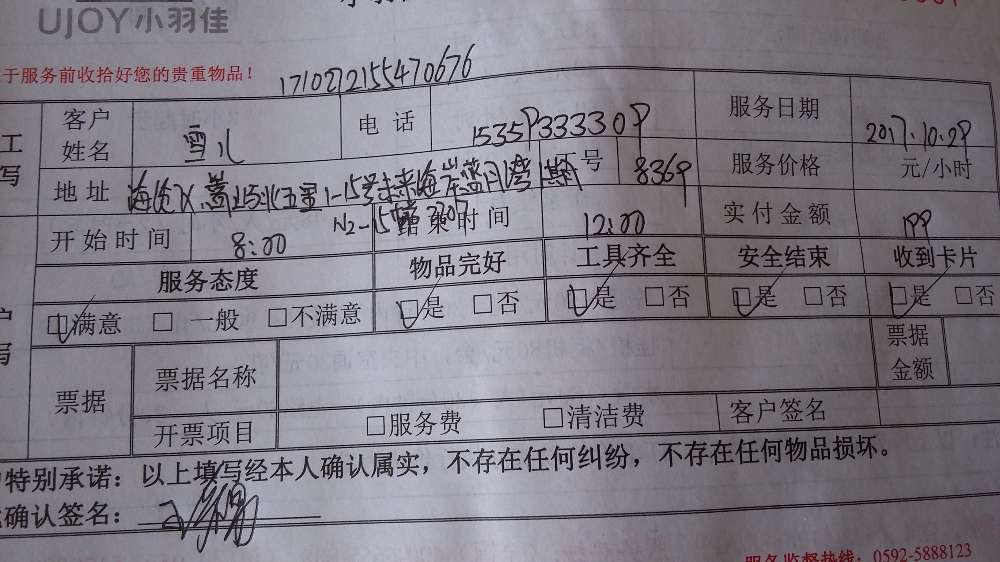 UJOY小羽佳
于服务前收拾好您的贵重物品！
1710272155470676
工 客户姓名 雪儿 电话 15359333309 服务日期 2017.10.29
写 地址 海沧区 1-15号未来海岸蓝月湾1期 工号 8369 服务价格 元/小时
开始时间 8:00 结束时间 12:00 实付金额 199
服务态度 物品完好 工具齐全 安全结束 收到卡片
户 ☑满意 □一般 □不满意 ☑是 □否 ☑是 □否 ☑是 □否 ☑是 □否
写 票据 票据名称 票据金额
开票项目 □服务费 □清洁费 客户签名
特别承诺：以上填写经本人确认属实，不存在任何纠纷，不存在任何物品损坏。
确认签名：
服务监督热线：0592-5888123